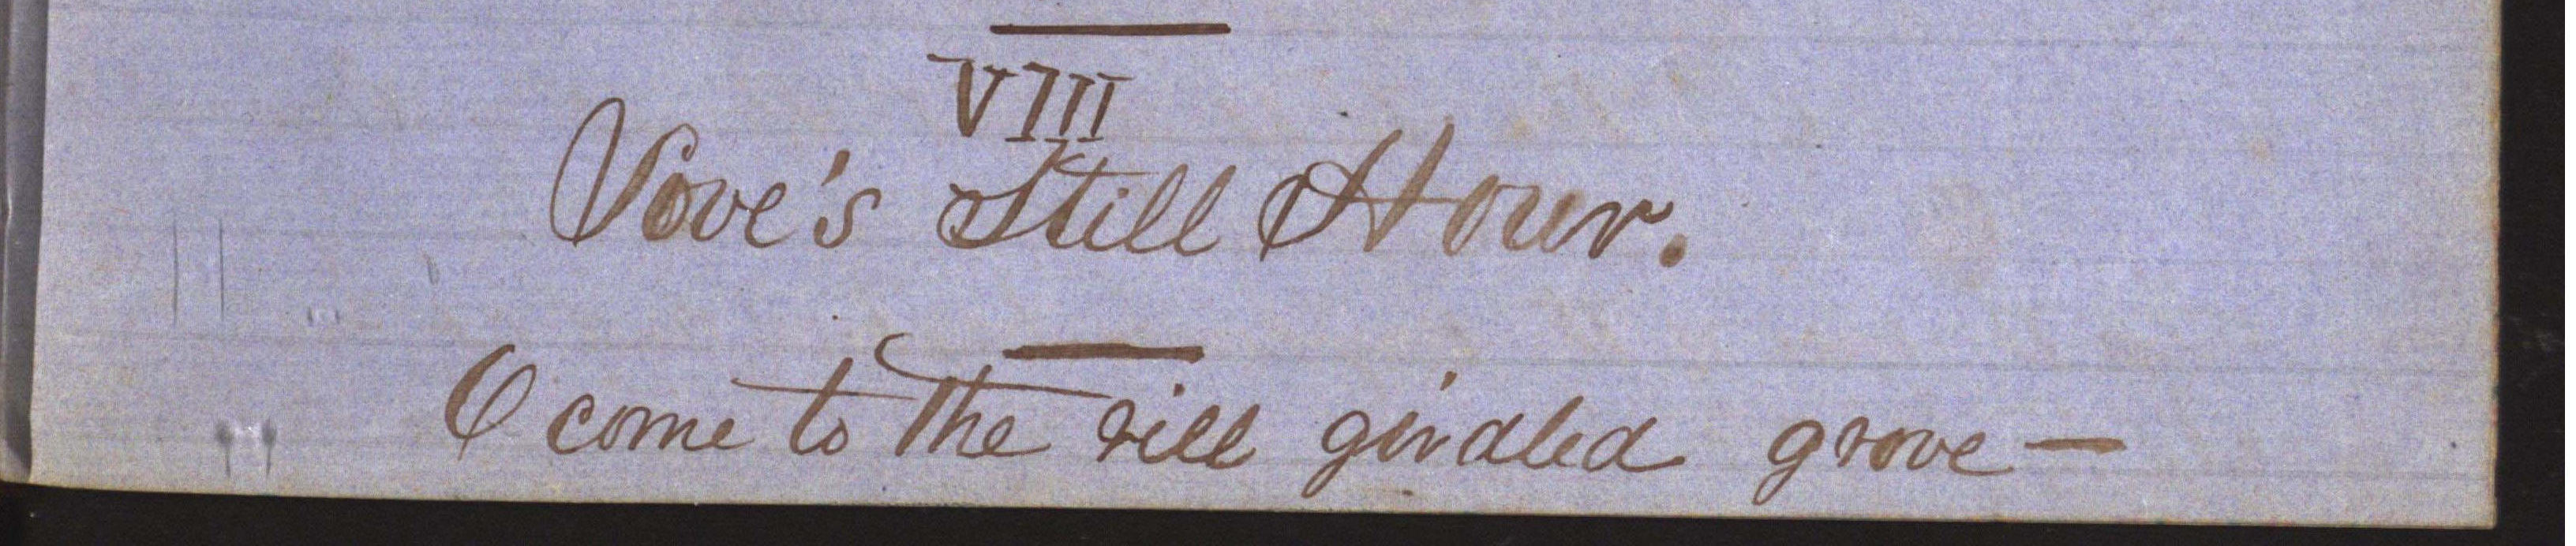 VIII
Love's Still Hour.
O come to the rill girdled grove —